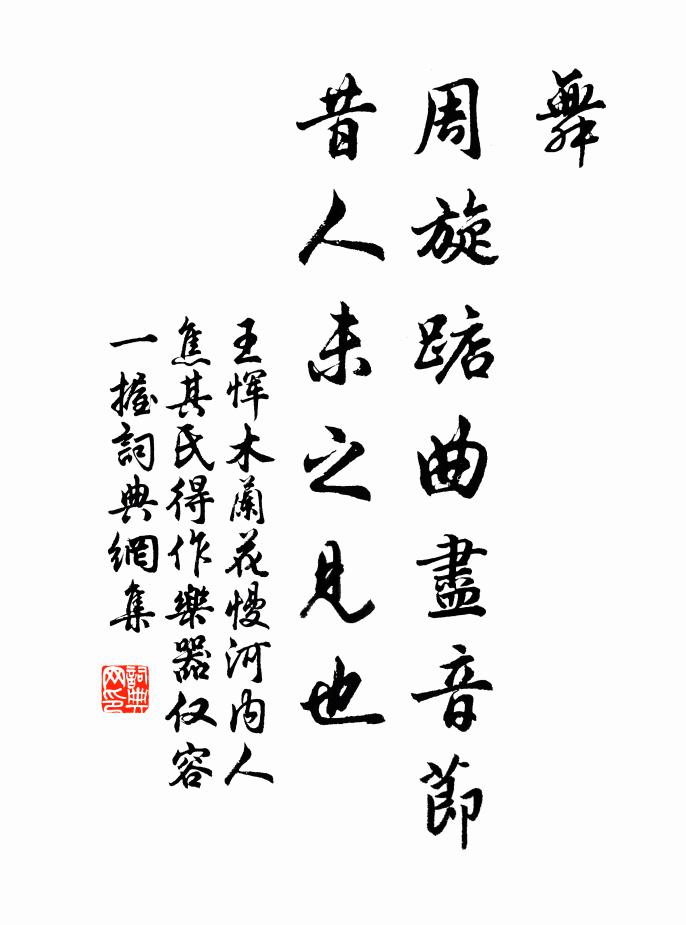 舞
周旋踮曲盡音節
昔人未之見也
王恽木蘭花慢河内人
焦其氏得作樂器仅容
一握詞典網集
詞典
网印